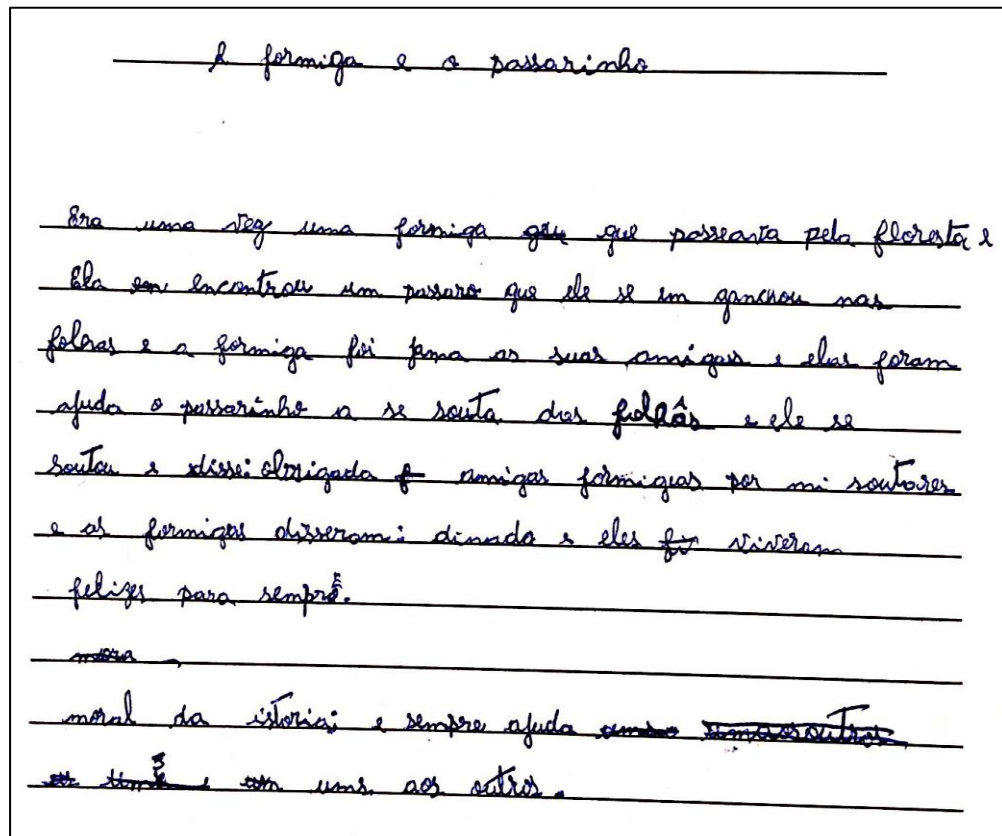 A formiga e o passarinho
Era uma vez uma formiga que passeava pela floresta e
Ela encontrou um passaro que ele se em ganchou nas
folhas e a formiga foi as suas amigas e elas foram
ajuda o passarinho a se souta das folhâs e ele se
soutou e disse: obrigada amigas formigas por mi soutares
e as formigas disseram: dinada e eles viveram
felizes para sempre.
moral da istoria: e sempre ajuda
uns aos outros.